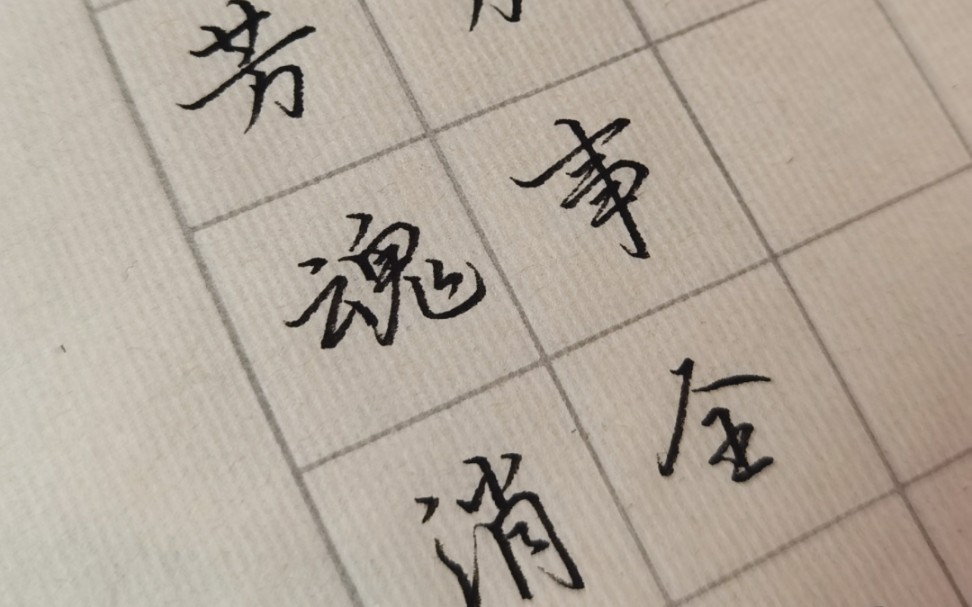 事全
芳魂消